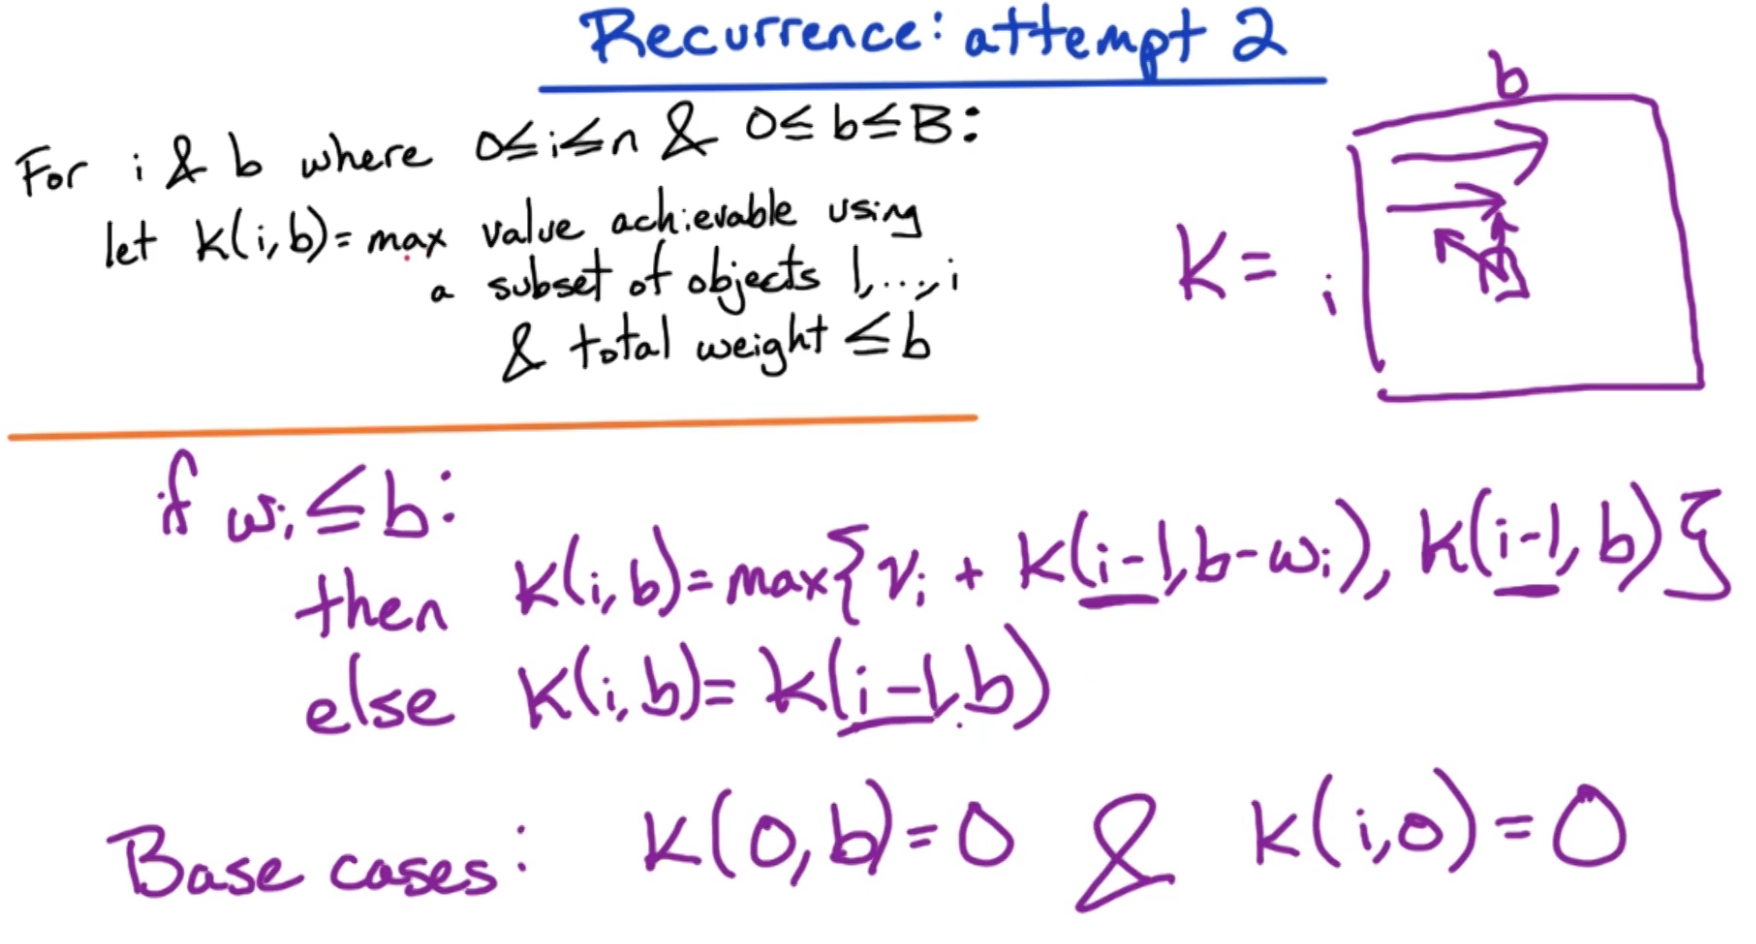 Recurrence: attempt 2
For i & b where 0≤i≤n & 0≤b≤B:
let K(i,b)= max value achievable using
a subset of objects 1,...,i
& total weight ≤b
b
K = i
if wᵢ ≤ b:
then K(i,b)=max{vᵢ + K(i-1,b-wᵢ), K(i-1,b)}
else K(i,b)= K(i-1,b)
Base cases: K(0,b)=0 & K(i,0)=0